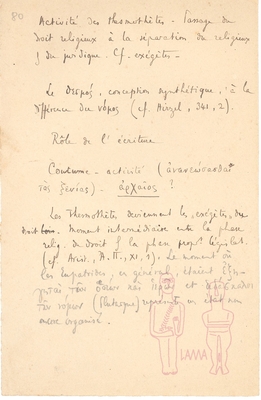 80
Activité des thesmothètes. Passage du
droit religieux à la séparation du religieux
& du juridique. Cf. exégètes.
Le θεσμός, conception synthétique, à la
différence du νόμος (cf. Hirzel, 341, 2).
Rôle de l'écriture
Coutume - activité (ἀνανεώσασθαι
τὰς ξενίας). ἀρχαῖος ?
Les Thesmothètes deviennent les exégètes du
droit. moment intermédiaire entre la phase
relig. du droit & la phase propr.
(cf. Arist., Ἀ. Π., XI, 1). Le moment où
les Eupatrides, en général, étaient
ὁσίων καὶ ἱερῶν et διδάσκαλοι
τῶν νόμων (Plutarque) représente un état non
encore organisé.
LAMA